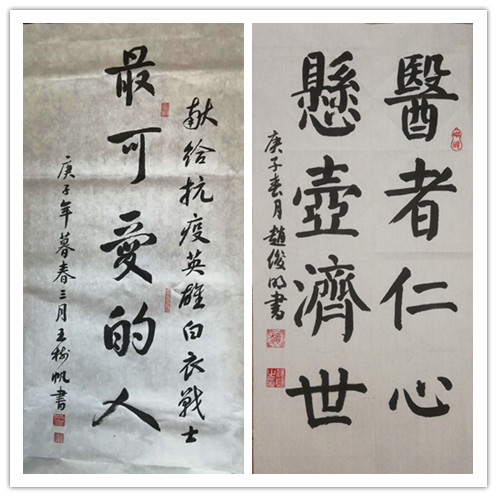 献给抗疫英雄白衣戰士
最可愛的人
庚子年暮春三月王树帆書
醫者仁心
懸壺濟世
庚子春月趙俊明書